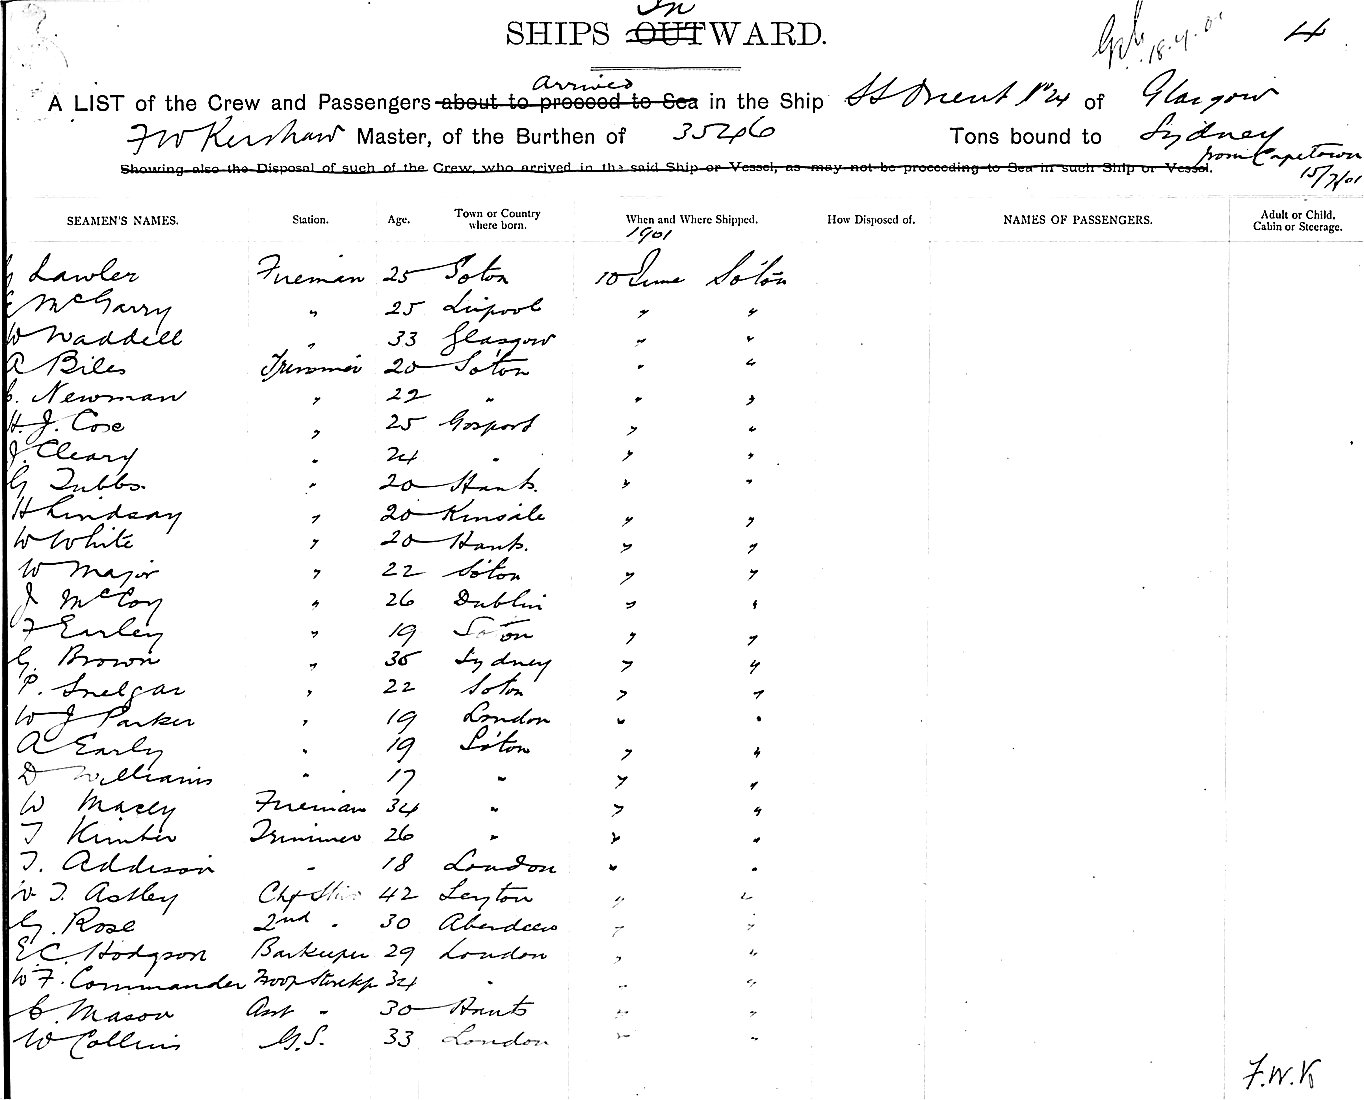 In
SHIPS OUTWARD.
18.7.01 4
Arrived
A LIST of the Crew and Passengers about to proceed to Sea in the Ship SS Orient No 24 of Glasgow
F W Kershaw Master, of the Burthen of 35246 Tons bound to Sydney
from Capetown
Showing also the Disposal of such of the Crew, who arrived in the said Ship or Vessel, as may not be proceeding to Sea in such Ship or Vessel.
15/7/01
SEAMEN'S NAMES. Station. Age. Town or Country where born. When and Where Shipped. How Disposed of. NAMES OF PASSENGERS. Adult or Child. Cabin or Steerage.
1901
Lawler Fireman 25 Soton 10 June Soton
McGarry " 25 Lirpool " "
W Waddell " 33 Glasgow " "
A Biles Trimmer 20 Soton " "
C. Newman " 22 " " "
H. J. Cose " 25 Gosport " "
J. Cleary " 24 " " "
G Tubbs " 20 Hants. " "
H Lindsay " 20 Kinsale " "
W White " 20 Hants. " "
W Major " 22 Soton " "
J McCoy " 26 Dublin " "
F Earley " 19 Soton " "
G. Brown " 36 Sydney " "
P. Snelgar " 22 Soton " "
W J Parker " 19 London " "
A Early " 19 Soton " "
D Williams " 17 " " "
W Macey Fireman 34 " " "
T Kimber Trimmer 26 " " "
T. Addison " 18 London " "
W T. Astley Chf Stwd 42 Leyton " "
G. Rose 2nd " 30 Aberdeen " "
E C Hodgson Barkeeper 29 London " "
W F. Commander Troop Storekp 34 " " "
C. Mason Asst " 30 Hants " "
W Collins G.S. 33 London " "
F.W.K